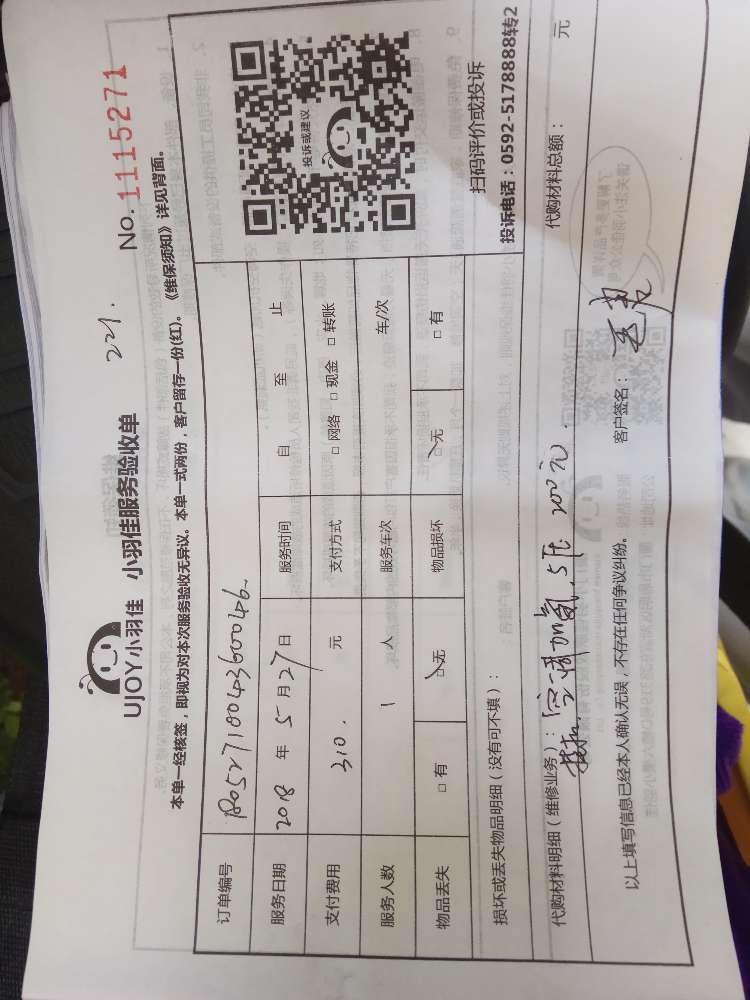 UJOY小羽佳 小羽佳服务验收单
221.
No. 1115271
本单一经核签，即视为对本次服务验收无异议。本单一式两份，客户留存一份(红)。《维保须知》详见背面。
订单编号 180527100436000046
服务日期 2018 年 5 月 27 日 服务时间 自 至 止
支付费用 310. 元 支付方式 □ 网络 □ 现金 □ 转账
服务人数 1 人 服务车次 车/次
物品丢失 □ 有 □ 无 物品损坏 □ 无 □ 有
投诉或建议
扫码评价或投诉
投诉电话：0592-5178888转2
损坏或丢失物品明细（没有可不填）：
代购材料明细（维修业务）： 空调加氟, 5压 200元. 代购材料总额： 元
以上填写信息已经本人确认无误，不存在任何争议纠纷。 客户签名：